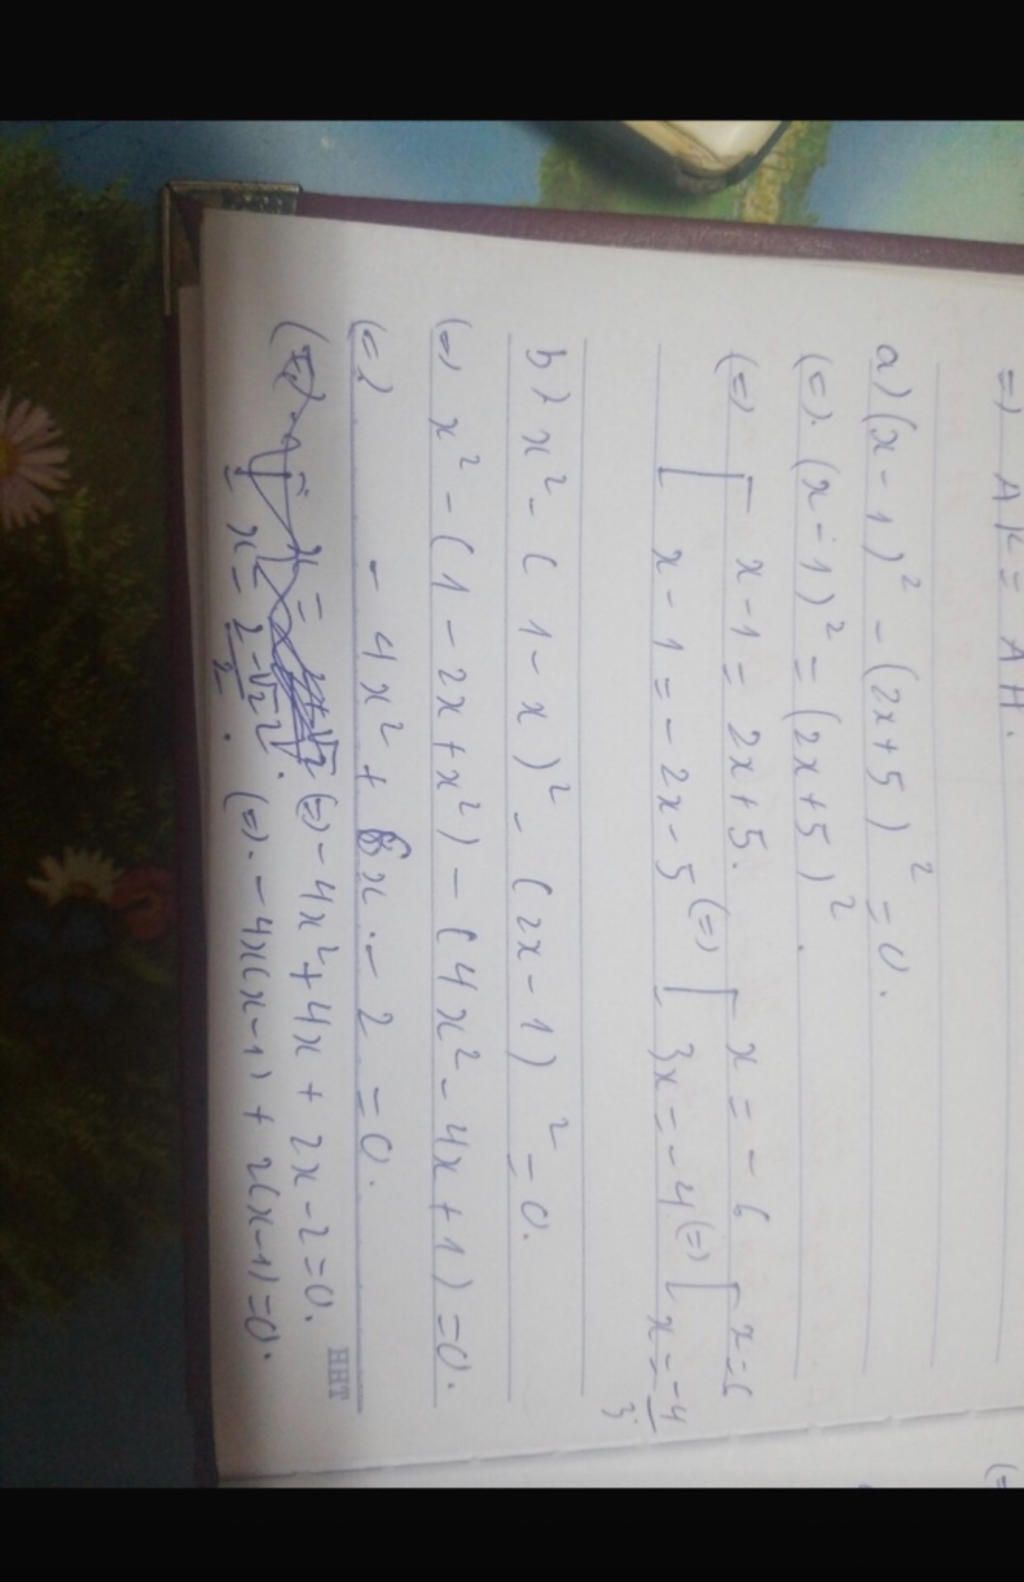 =) AK = AH.
a) (x - 1)² - (2x + 5)² = 0.
(=). (x - 1)² = (2x + 5)².
(=) [ x - 1 = 2x + 5. (=) [ x = - 6 (=) [ x = 6
x - 1 = - 2x - 5 3x = - 4 x = -4/3
b) x² - (1 - x)² - (2x - 1)² = 0.
(=) x² - (1 - 2x + x²) - (4x² - 4x + 1) = 0.
(=) - 4x² + 6x - 2 = 0.
(=) - 4x² + 4x + 2x - 2 = 0.
x = 2-√2/2 . (=). - 4x(x - 1) + 2(x - 1) = 0.
HHT